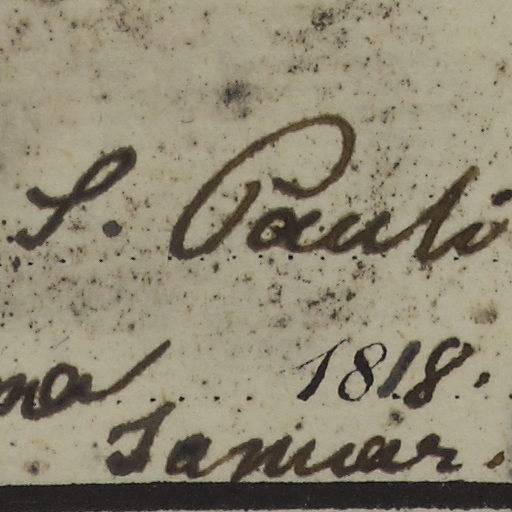 S. Pauli
na 1818.
Januar.